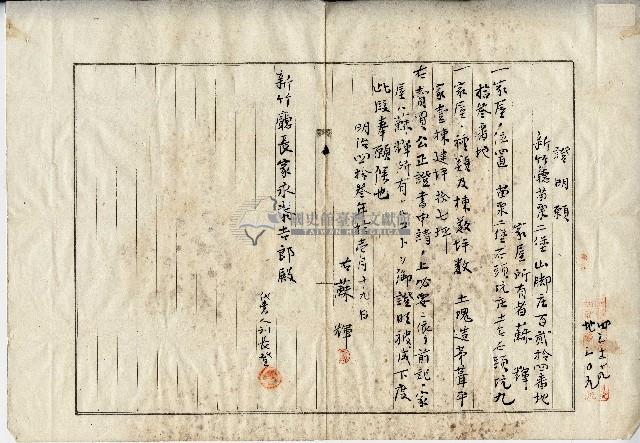 證明願
新竹廳苗栗二堡山脚庄百貳拾四番地
家屋所有者 蘇輝
一家屋ノ位置 苗栗二堡石頭坑庄土名石頭坑九
拾叁番地
一家屋ノ種類及棟数坪数 土塊造茅葺平
家壹棟建坪拾七坪
右賣買公正證書申請ノ上必要ニ依リ前記ノ家
屋ハ蘇輝所有ノコトヲ御證明被成下度
此段奉願候也
明治四拾叁年拾壱月十九日
右 蘇輝
新竹廳長家永泰吉郎殿
代書人 劉長
國史館臺灣文獻館
TAIWAN HISTORICA